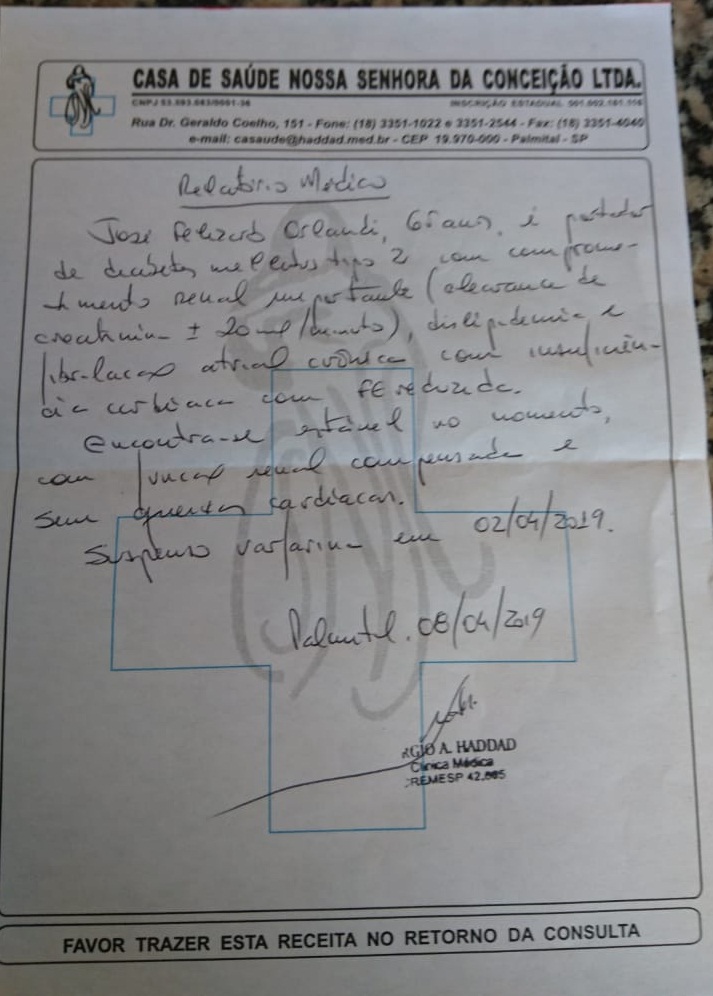 CASA DE SAÚDE NOSSA SENHORA DA CONCEIÇÃO LTDA.
CNPJ INSCRIÇÃO ESTADUAL
Rua Dr. Geraldo Coelho, 151 - Fone: (18) 3351-1022 e 3351-2544 - Fax: (18) 3351-4040
e-mail: casaude@haddad.med.br - CEP 19.970-000 - Palmital - SP
Relatório Médico
José Orlandi, anos, é portador
de diabetes mellitus tipo 2 com comprome-
timento renal importante (clearance de
creatinina ± 20 ml/minuto), dislipidemia e
fibrilação atrial crônica com insuficiên-
cia cardíaca com FE reduzida.
Encontra-se estável no momento,
com função renal compensada e
sem queixas cardíacas.
Suspenso varfarina em 02/04/2019.
Palmital. 08/04/2019
RGIO A. HADDAD
Clínica Médica
CREMESP
FAVOR TRAZER ESTA RECEITA NO RETORNO DA CONSULTA